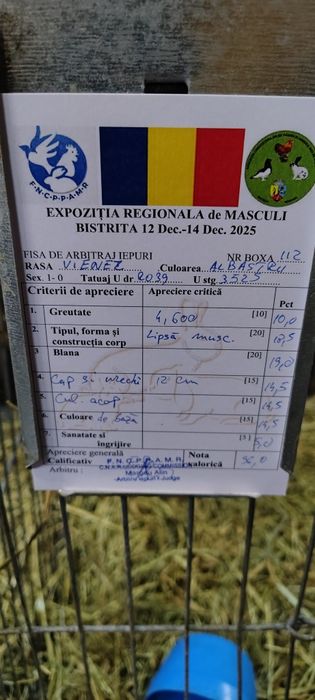 F-N-C-P-P-A-M-R
EXPOZIȚIA REGIONALA de MASCULI
BISTRITA 12 Dec.-14 Dec. 2025
FISA DE ARBITRAJ IEPURI NR BOXA 112
RASA VIENEZ Culoarea ALBASTRU
Sex. 1- 0 Tatuaj U dr. 2039 U stg 3525
Criterii de apreciere Apreciere critică Pct
1. Greutate 4,600 [10] 10,0
2. Tipul, forma și construcția corp Lipsă musc. [20] 18,5
3 Blana [20] 19,0
4. Cap și urechi 12 cm [15] 14,5
5. Cul. acop [15] 14,5
6. Culoare de bază [15] 14,5
7. Sanatate si îngrijire [5] 5,0
Apreciere generală
Calificativ F.N.C.P.P.A.M.R. Nota valorică
Arbitru :